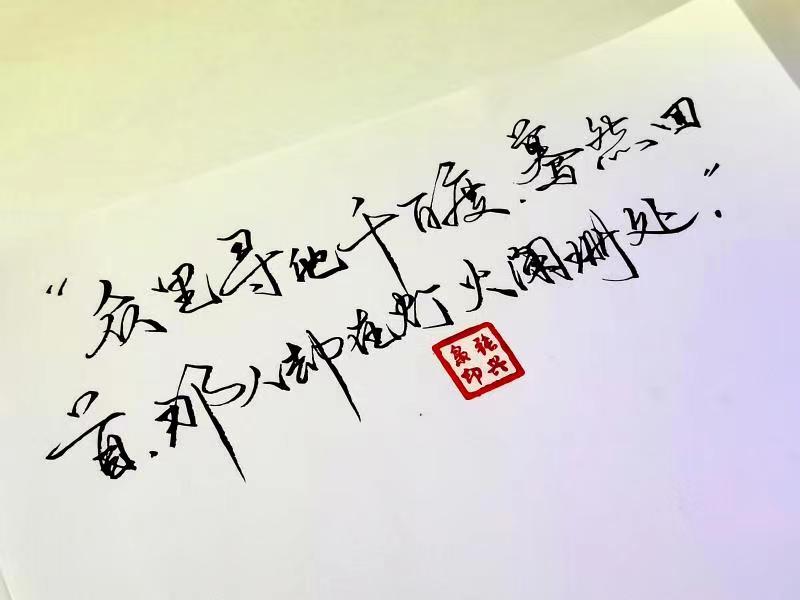 “众里寻他千百度.蓦然回
首.那人却在灯火阑珊处”.
张兴
印